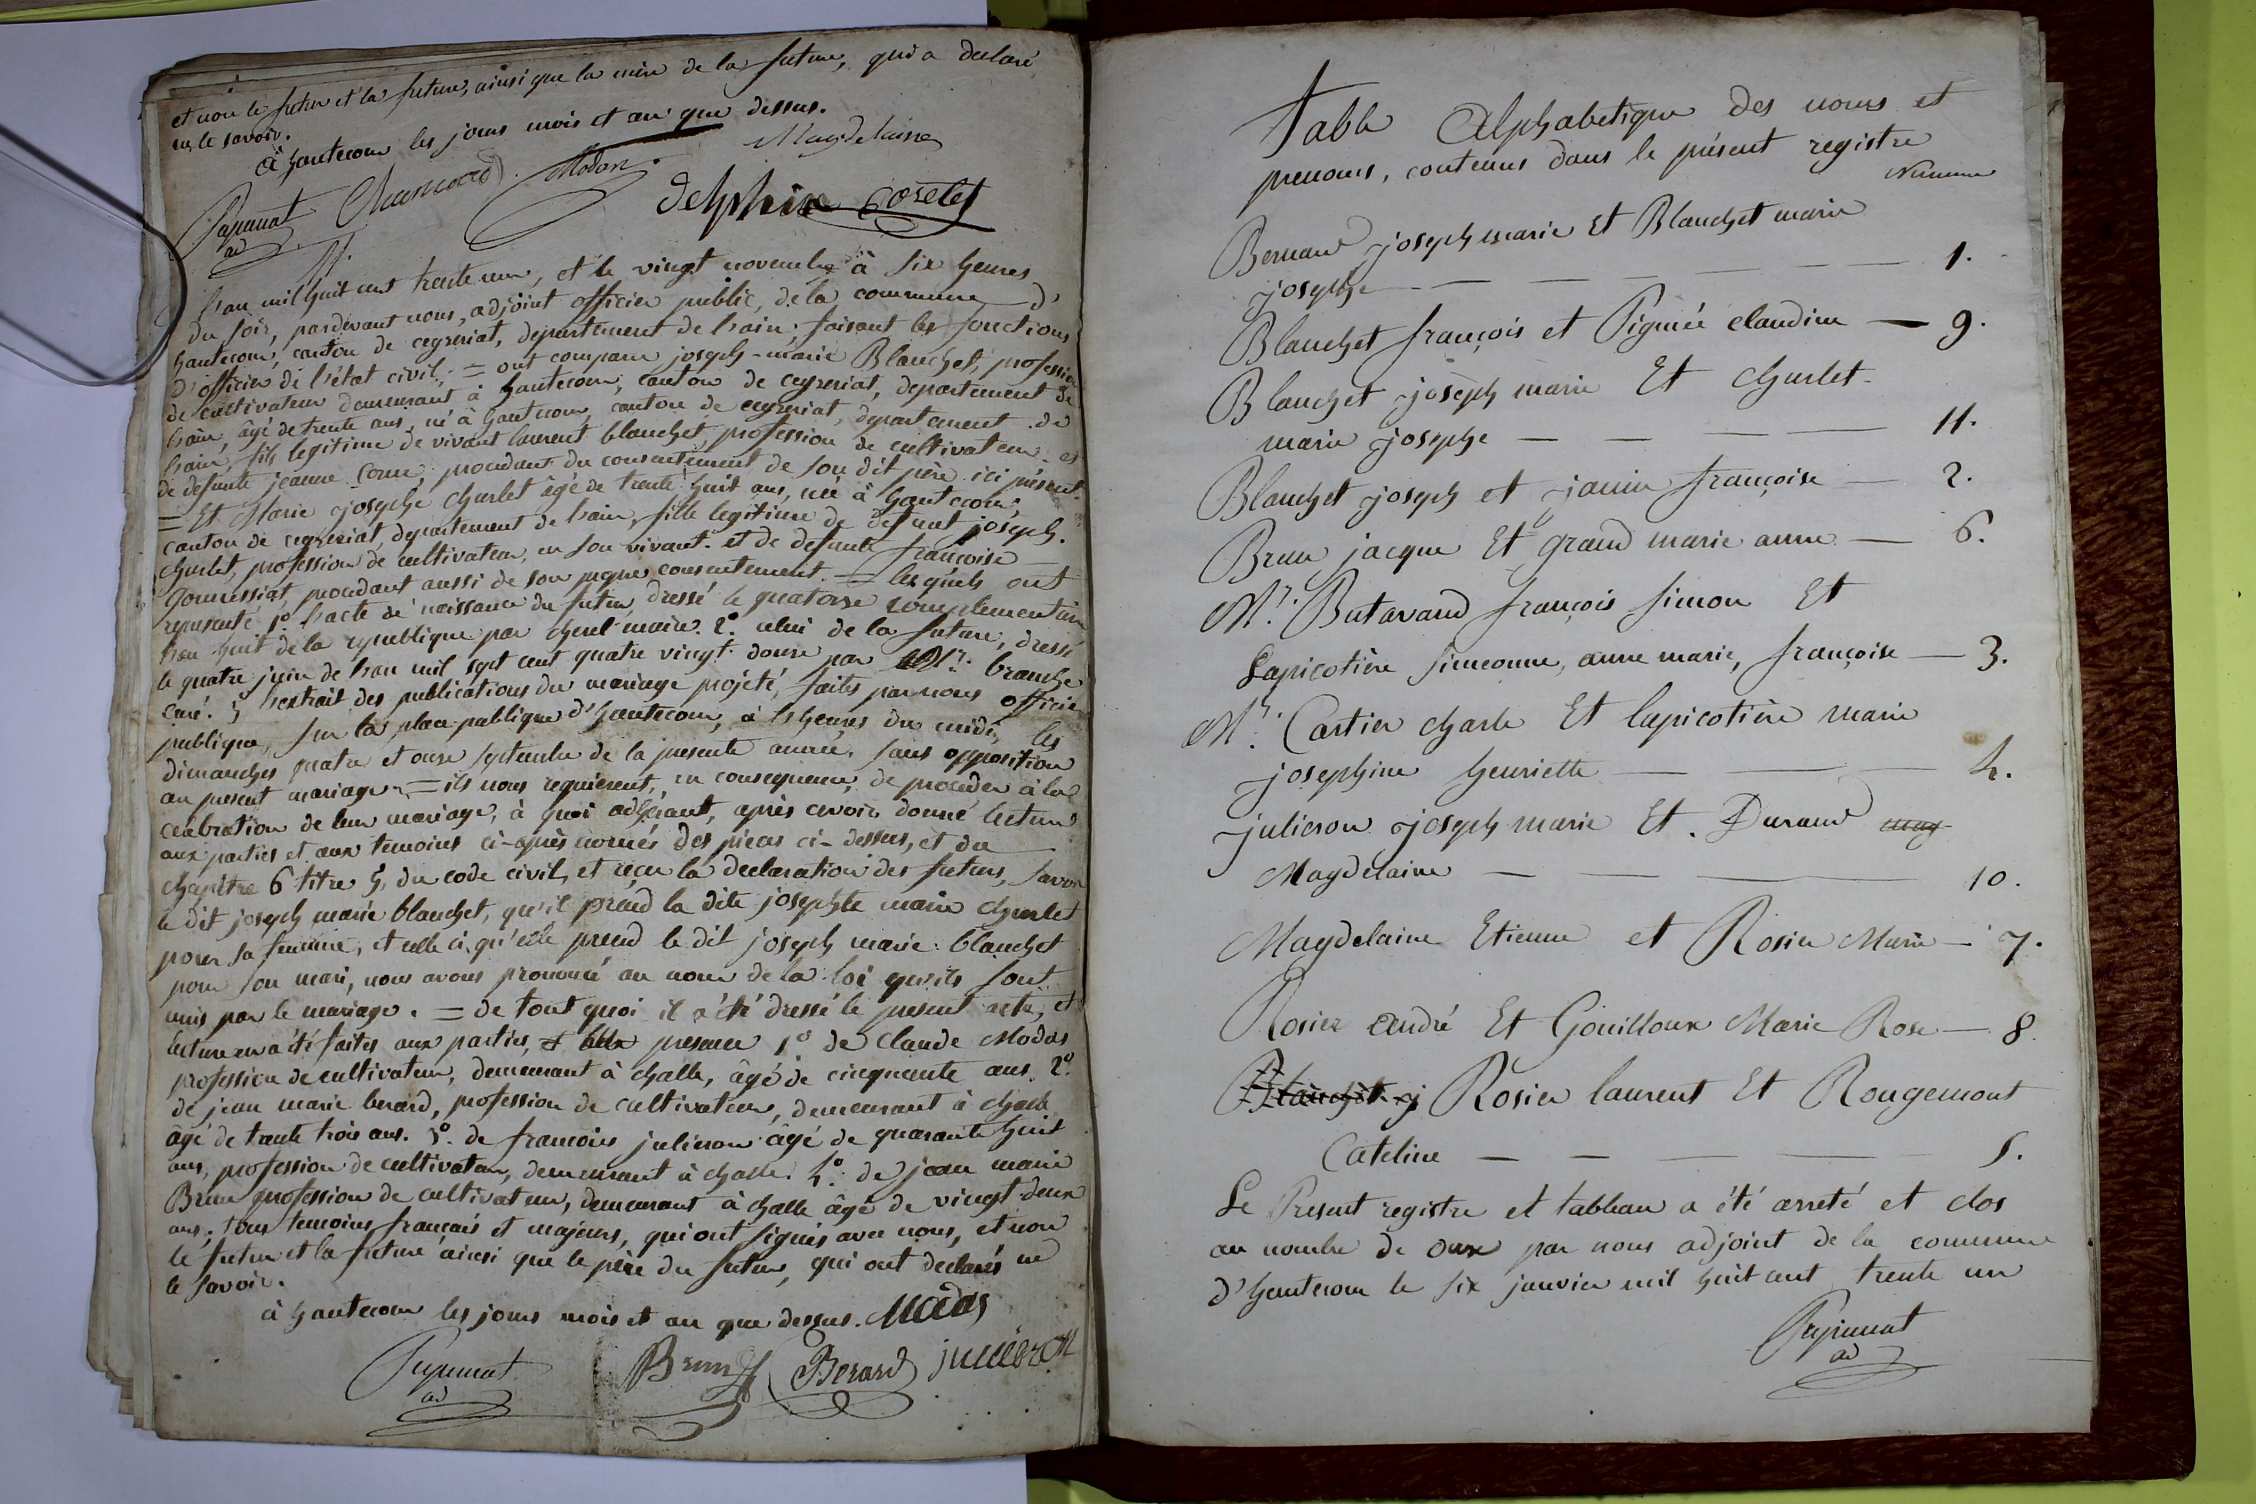 et non le futur et la future, ainsi que la mère de la future, qui a declaré
ne le savoir.
à hautecour les jours mois et an que dessus.
Papunat Chanard Modas Magdelaine
ad
delphin Cozelet
11.
L'an mil huit cent trente un, et le vingt novembre à six heures
du soir, pardevant nous, adjoint officier public, de la commune d'
hautecour, canton de ceyzeriat, departement de l'ain, faisant les fonctions
d'officier de l'état civil; = ont comparu joseph-marie Blanchet, profession
de cultivateur demeurant à hautecour, canton de ceyzeriat, departement de
l'ain, âgé de trente ans, né à hautecour, canton de ceyzeriat, departement de
l'ain, fils legitime de vivant laurent blanchet, profession de cultivateur et
de defunte jeanne procedant du consentement de son dit père ici présent.
= Et Marie josephe churlet âgée de trente huit ans, née à hautecour,
canton de ceyzeriat, departement de l'ain, fille legitime de defunt joseph
churlet, profession de cultivateur, en son vivant. et de defunte françoise
procedant aussi de son propre consentement. = lesquels ont
representé 1º. l'acte de naissance du futur, dressé le quatorze complementaire
l'an huit de la republique par maire. 2º. celui de la future, dressé
le quatre juin de l'an mil sept cent quatre vingt douze par Mr. branche
curé. 3 l'extrait des publications du mariage projeté, faites par nous officier
publique, sur la place publique d'hautecour, à heures du midi, les
dimanches quatre et onze septembre de la presente année, sans opposition
au present mariage. = ils nous requièrent, en consequence, de proceder à la
celebration de leur mariage, à quoi adhérant, après avoir donné lecture
aux parties et aux temoins ci-après només des pièces ci-dessus, et du
chapitre 6 titre 5, du code civil, et reçu la declaration des futurs, savoir
le dit joseph marie blanchet, qu'il prend la dite josephte marie churlet
pour sa femme, et celle ci, qu'elle prend le dit joseph marie blanchet
pour son mari, nous avons prononcé au nom de la loi qu'ils sont
unis par le mariage. = de tout quoi il a été dressé le present acte, et
lecture en a été faites aux parties, presence 1º de Claude Modas
profession de cultivateur, demeurant à challe, âgé de cinquante ans. 2º.
de jean marie berard, profession de cultivateur, demeurant à challe
âgé de trente trois ans. 3º. de francois julieron âgé de quarante huit
ans, profession de cultivateur, demeurant à challe. 4º. de jean marie
Brun profession de cultivateur, demeurant à challe âgé de vingt deux
ans; tous temoins francais et majeurs, qui ont signés avec nous, et non
le futur et la future ainsi que le père du futur, qui ont declarés ne
le savoir.
à hautecour les jours mois et an que dessus. Modas
Papunat Brun Berard julieron
ad
Table Alphabetique des noms et
prenoms, contenus dans le présent registre
Numero
Bernard joseph marie Et Blanchet marie
josephe — — — — — 1.
Blanchet françois et Pignié claudine — 9.
Blanchet joseph marie Et churlet
marie josephe — — — — 11.
Blanchet joseph et janin françoise — 2.
Brun jacque Et grand marie anne — 6.
Mr. Butavand françois simon Et
Lapicotière simeonne, anne marie, françoise — 3.
Mr. Cartier charle Et lapicotière marie
josephine henriette — — — 4.
julieron joseph marie Et. Durand mag
Magdelaine — — — 10.
Magdelaine Etienne et Rosier Marie — 7.
Rosier andré Et Gouilloux Marie Rose — 8.
Blanchet j Rosier laurent Et Rougemont
Cateline — — — — 5.
Le Present registre et tableau a été arreté et clos
au nombre de onze par nous adjoint de la commune
d'hautecour le six janvier mil huit cent trente un
Papunat
ad